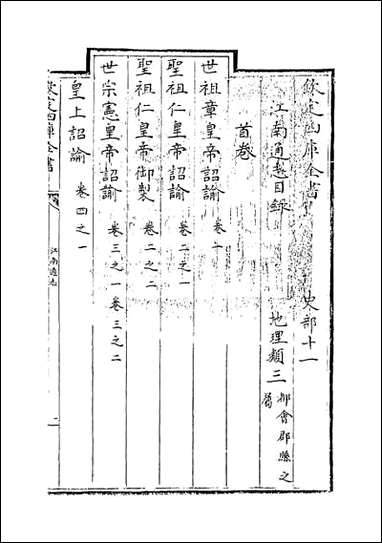 欽定四庫全書 史部十一
江南通志目錄 地理類三 都會郡縣之屬
首卷
世祖章皇帝詔諭 卷一
聖祖仁皇帝詔諭 卷二之一
聖祖仁皇帝御製 卷二之二
世宗憲皇帝詔諭 卷三之一卷三之二
皇上詔諭 卷四之一
欽定四庫全書 江南通志 一